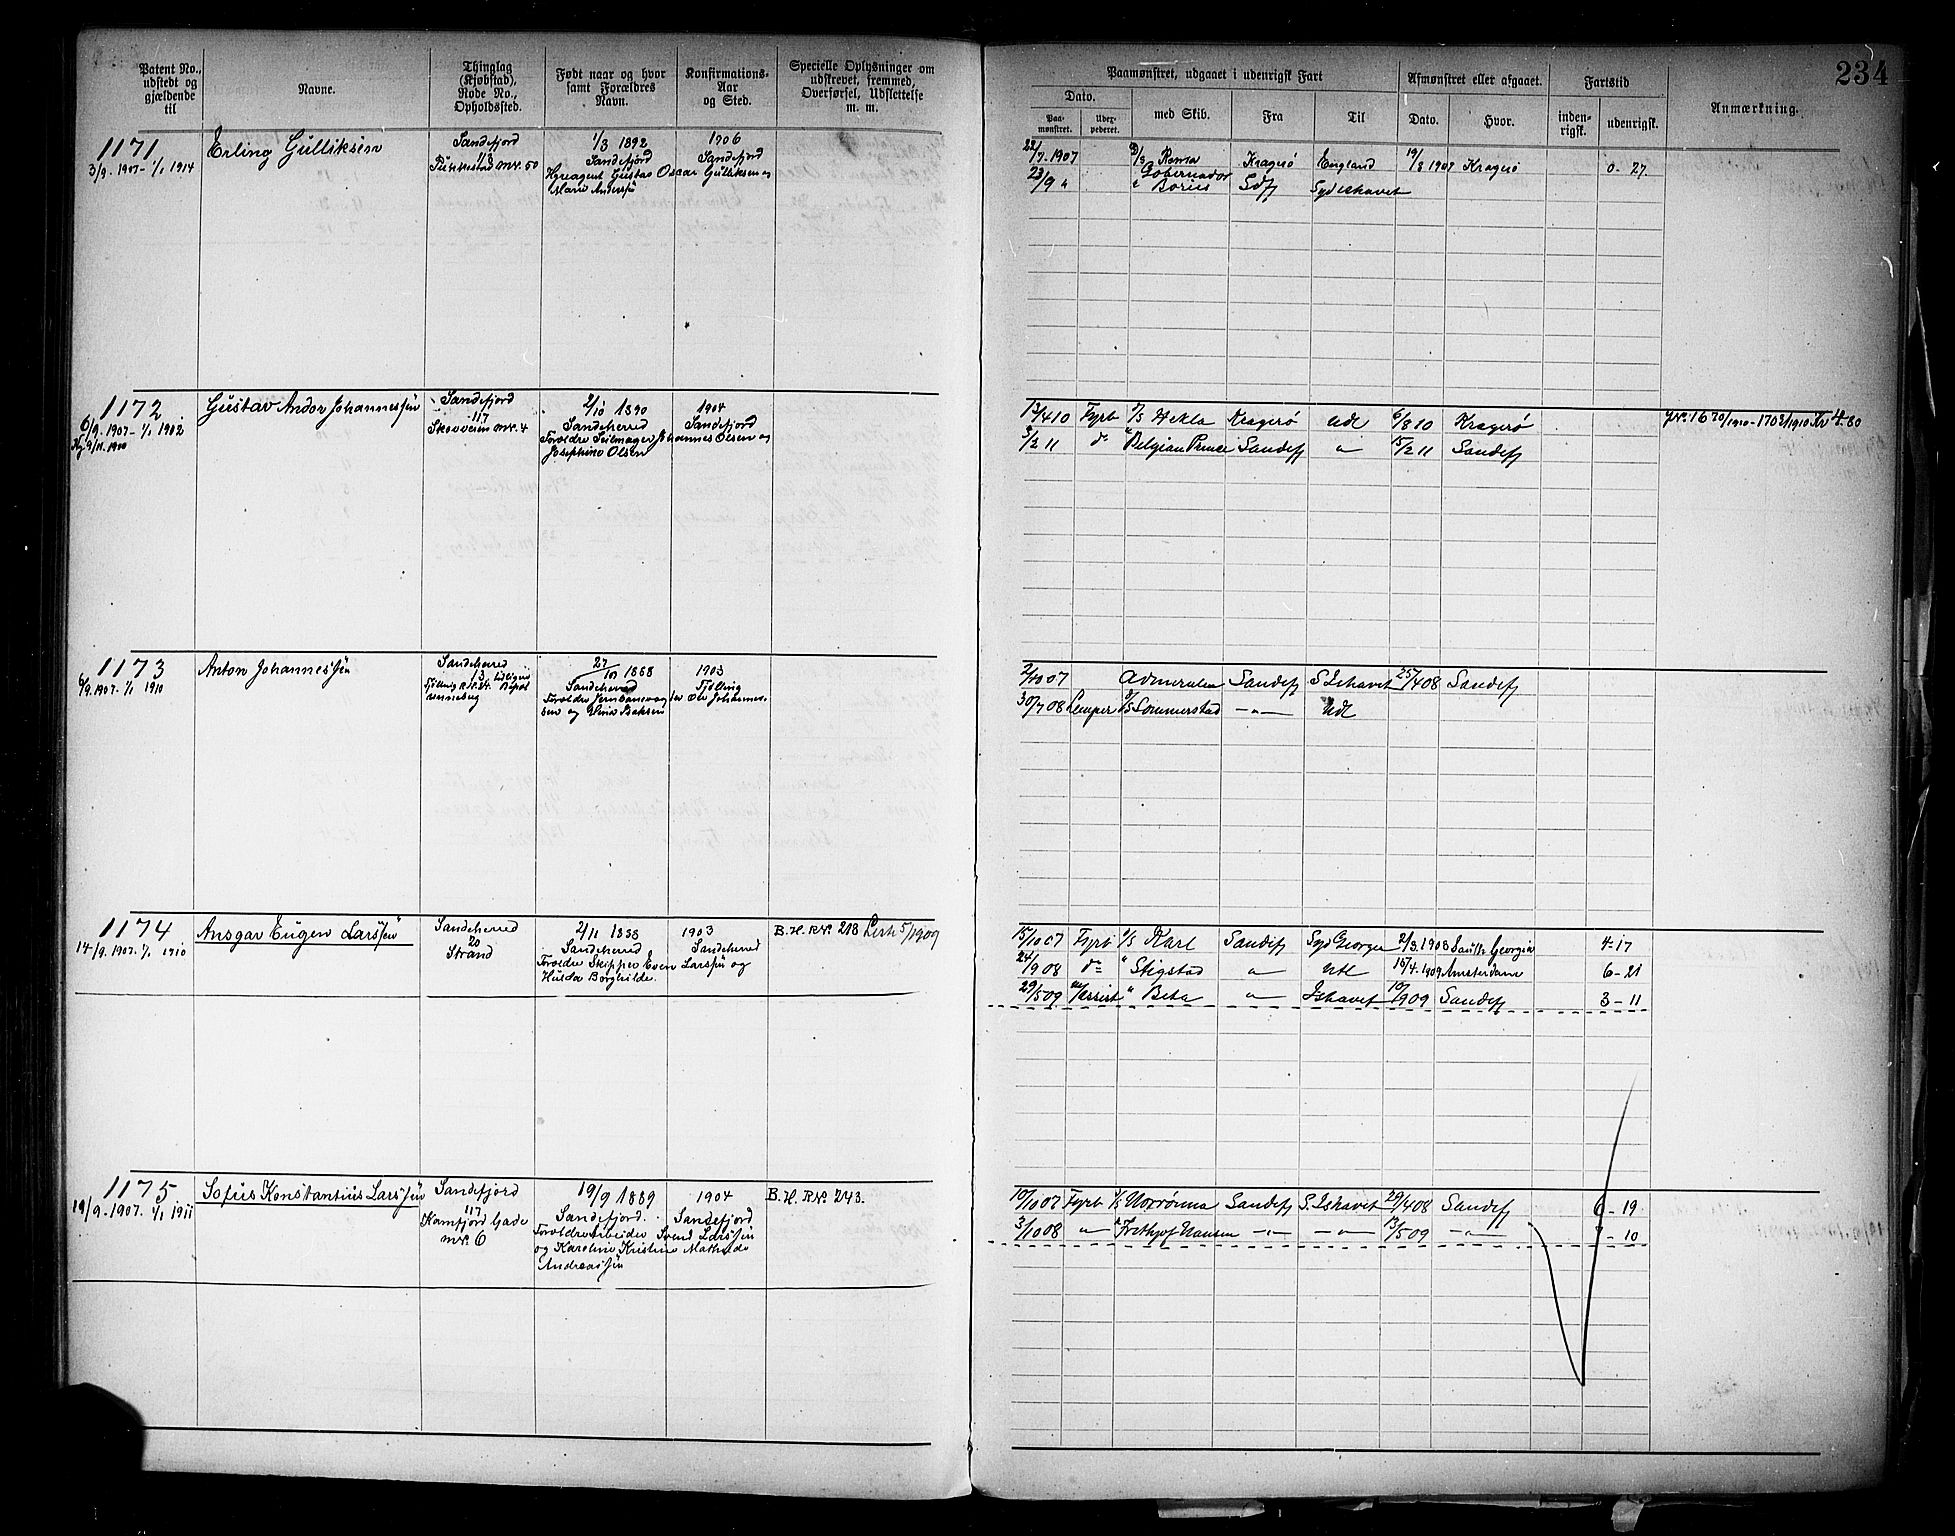 234
Patent No., udstedt og gjældende til
Navne.
Thinglag (Kjøbstad), Rode No., Opholdssted.
Født naar og hvor samt Forældres Navn.
Konfirmations-Aar og Sted.
Specielle Oplysninger om udskrevet, fremmed Overførsel, Udslettelse m. m.
Paamønstret, udgaaet i udenrigsk Fart
Afmønstret eller afgaaet.
Fartstid
Anmærkning.
Dato.
Paa-mønstret.
med Skib.
Fra
Til
Dato.
Hvor.
inden-rigsk.
udenrigsk.
1171
3/9. 1907- 1/1 1914
Erling Gulliksen
Sandefjord
113
mr. 50
1/3 1892
Sandefjord
Hyreagent Gustav Oscar Gulliksen og
Marie Andersen
1906
Sandefjord
22/7. 1907 Roma Kragerø England 19/8 1907 Kragerø 0- 27.
23/9 " Gobernador Bories Sdfj Sydishavet
1172
6/9. 1907- 1/1 1902
Gustav Andor Johannessen
Sandefjord
117
Skovveien mr. 4
2/10 1890
Sandeherred
Forældre Seilmager Johannes Olsen og
Josephine Olsen
1904
Sandefjord
13/4 10 Fyrb S/S Hekla Kragerø Udl 6/8 10 Kragerø
2/2 11 do " Belgian Prince Sandefj " 15/2 11 Sandefj
1173
6/9. 1907- 1/1 1910
Anton Johannessen
Sandeherred
27/10 1888
Sandeherred
og Elina Baksen
1903
Tjølling
2/10 07 Admiralen Sandefj S Ishavet 25/4 08 Sandefj
30/7 08 Lemper S/S Sommerstad -"- Udl
1174
14/9. 1907. 1/1 1910
Ansgar Eugen Larssen
Sandeherred
20
Strand
2/11 1888
Sandeherred
Forældre Skipper Even Larssen og
Hulda Borghilde.
1903
Sandeherred
B. H. R No. 218 Lerk 5/1909
15/10 07 Fyrb S/S Karl Sandefj Syd Georgia 2/3. 1908 South Georgia 4-17
24/9 08 do " Stigstad " Udl 15/4. 1909 Amsterdam 6-21
29/5 09 " Beta " Ishavet 10/9 09 Sandefj 3-11
1175
19/9. 1907. 1/1 1911
Sofus Konstantius Larssen
Sandefjord
117
Kamfjord Gade
mr. 6
19/9 1889
Sandefjord.
Forældre Arbeider Svend Larssen
og Karoline Kristine Mathilde
Andreassen
1904
Sandefjord
B. H. R No. 243.
10/10 07 Fyrb S/S Norrøna Sandefj S. Ishavet 29/4 08 Sandefj 6-19
3/10 08 " " Fridtjof Nansen -"- -"- 13/5 09 -"- 7-10